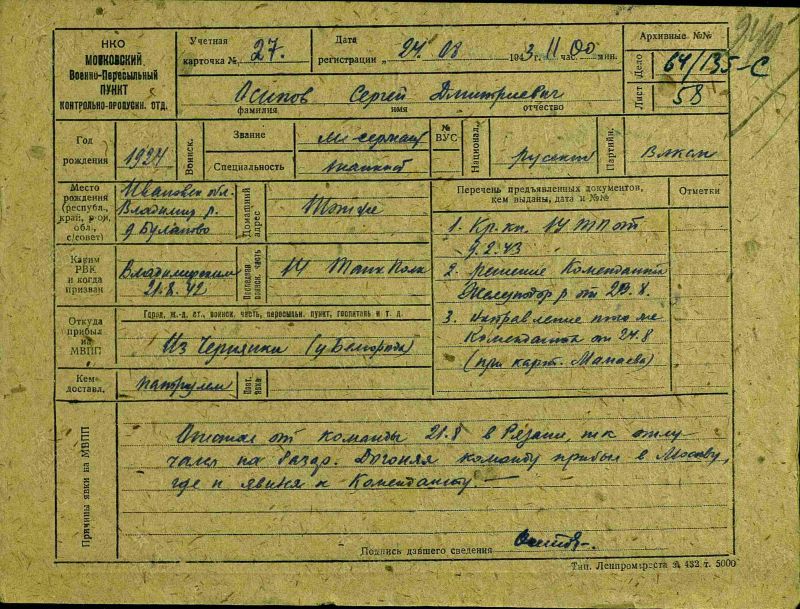 НКО
МОСКОВСКИЙ
Военно-Пересыльный
ПУНКТ
КОНТРОЛЬНО-ПРОПУСКН. ОТД.
Учетная
карточка № 27.
Дата
регистрации „ 24. 08 194 3, 11 час. 00 мин.
Архивные №№
Дело 64/135-С
Лист 58
Осипов Сергей Дмитриевич
фамилия имя отчество
Год
рождения
1924
Воинск.
Звание
мл-сержант
Специальность
танкист
№
ВУС
Национал.
русский
Партийн.
Влксм
Место
рождения
(республ.,
край, р-он,
обл.,
с/совет)
Ивановск обл.
Владимир р.
д. Буланово
Домашний
адрес
Тот же
Каким
РВК
и когда
призван
Владимирским
21.8.42
Последняя
воинск. часть
14 Танк Полк
Откуда
прибыл
на
МВПП
Город, ж.-д. ст., воинск. часть, пересыльн. пункт, госпиталь и т. д.
Из Чернянки (у Белгорода)
Кем
доставл.
патрулем
Перечень предъявленных документов,
кем выданы, дата и №№
Отметки
1. Кр. кн. 14 ТП от
9.2.43
2. решение Коменданта
Железнодор р. от 8.
3. направление того же
Коменданта от 24.8
(при карт. Мамаева)
Причины явки на МВПП
Отстал от команды 21.8 в Рязани, т.к отлу
чался на базар. Догоняя команду прибыл в Москву,
где и явился к Коменданту. —
Подпись давшего сведения
Тип. Ленпромтреста З. 432 т. 5000